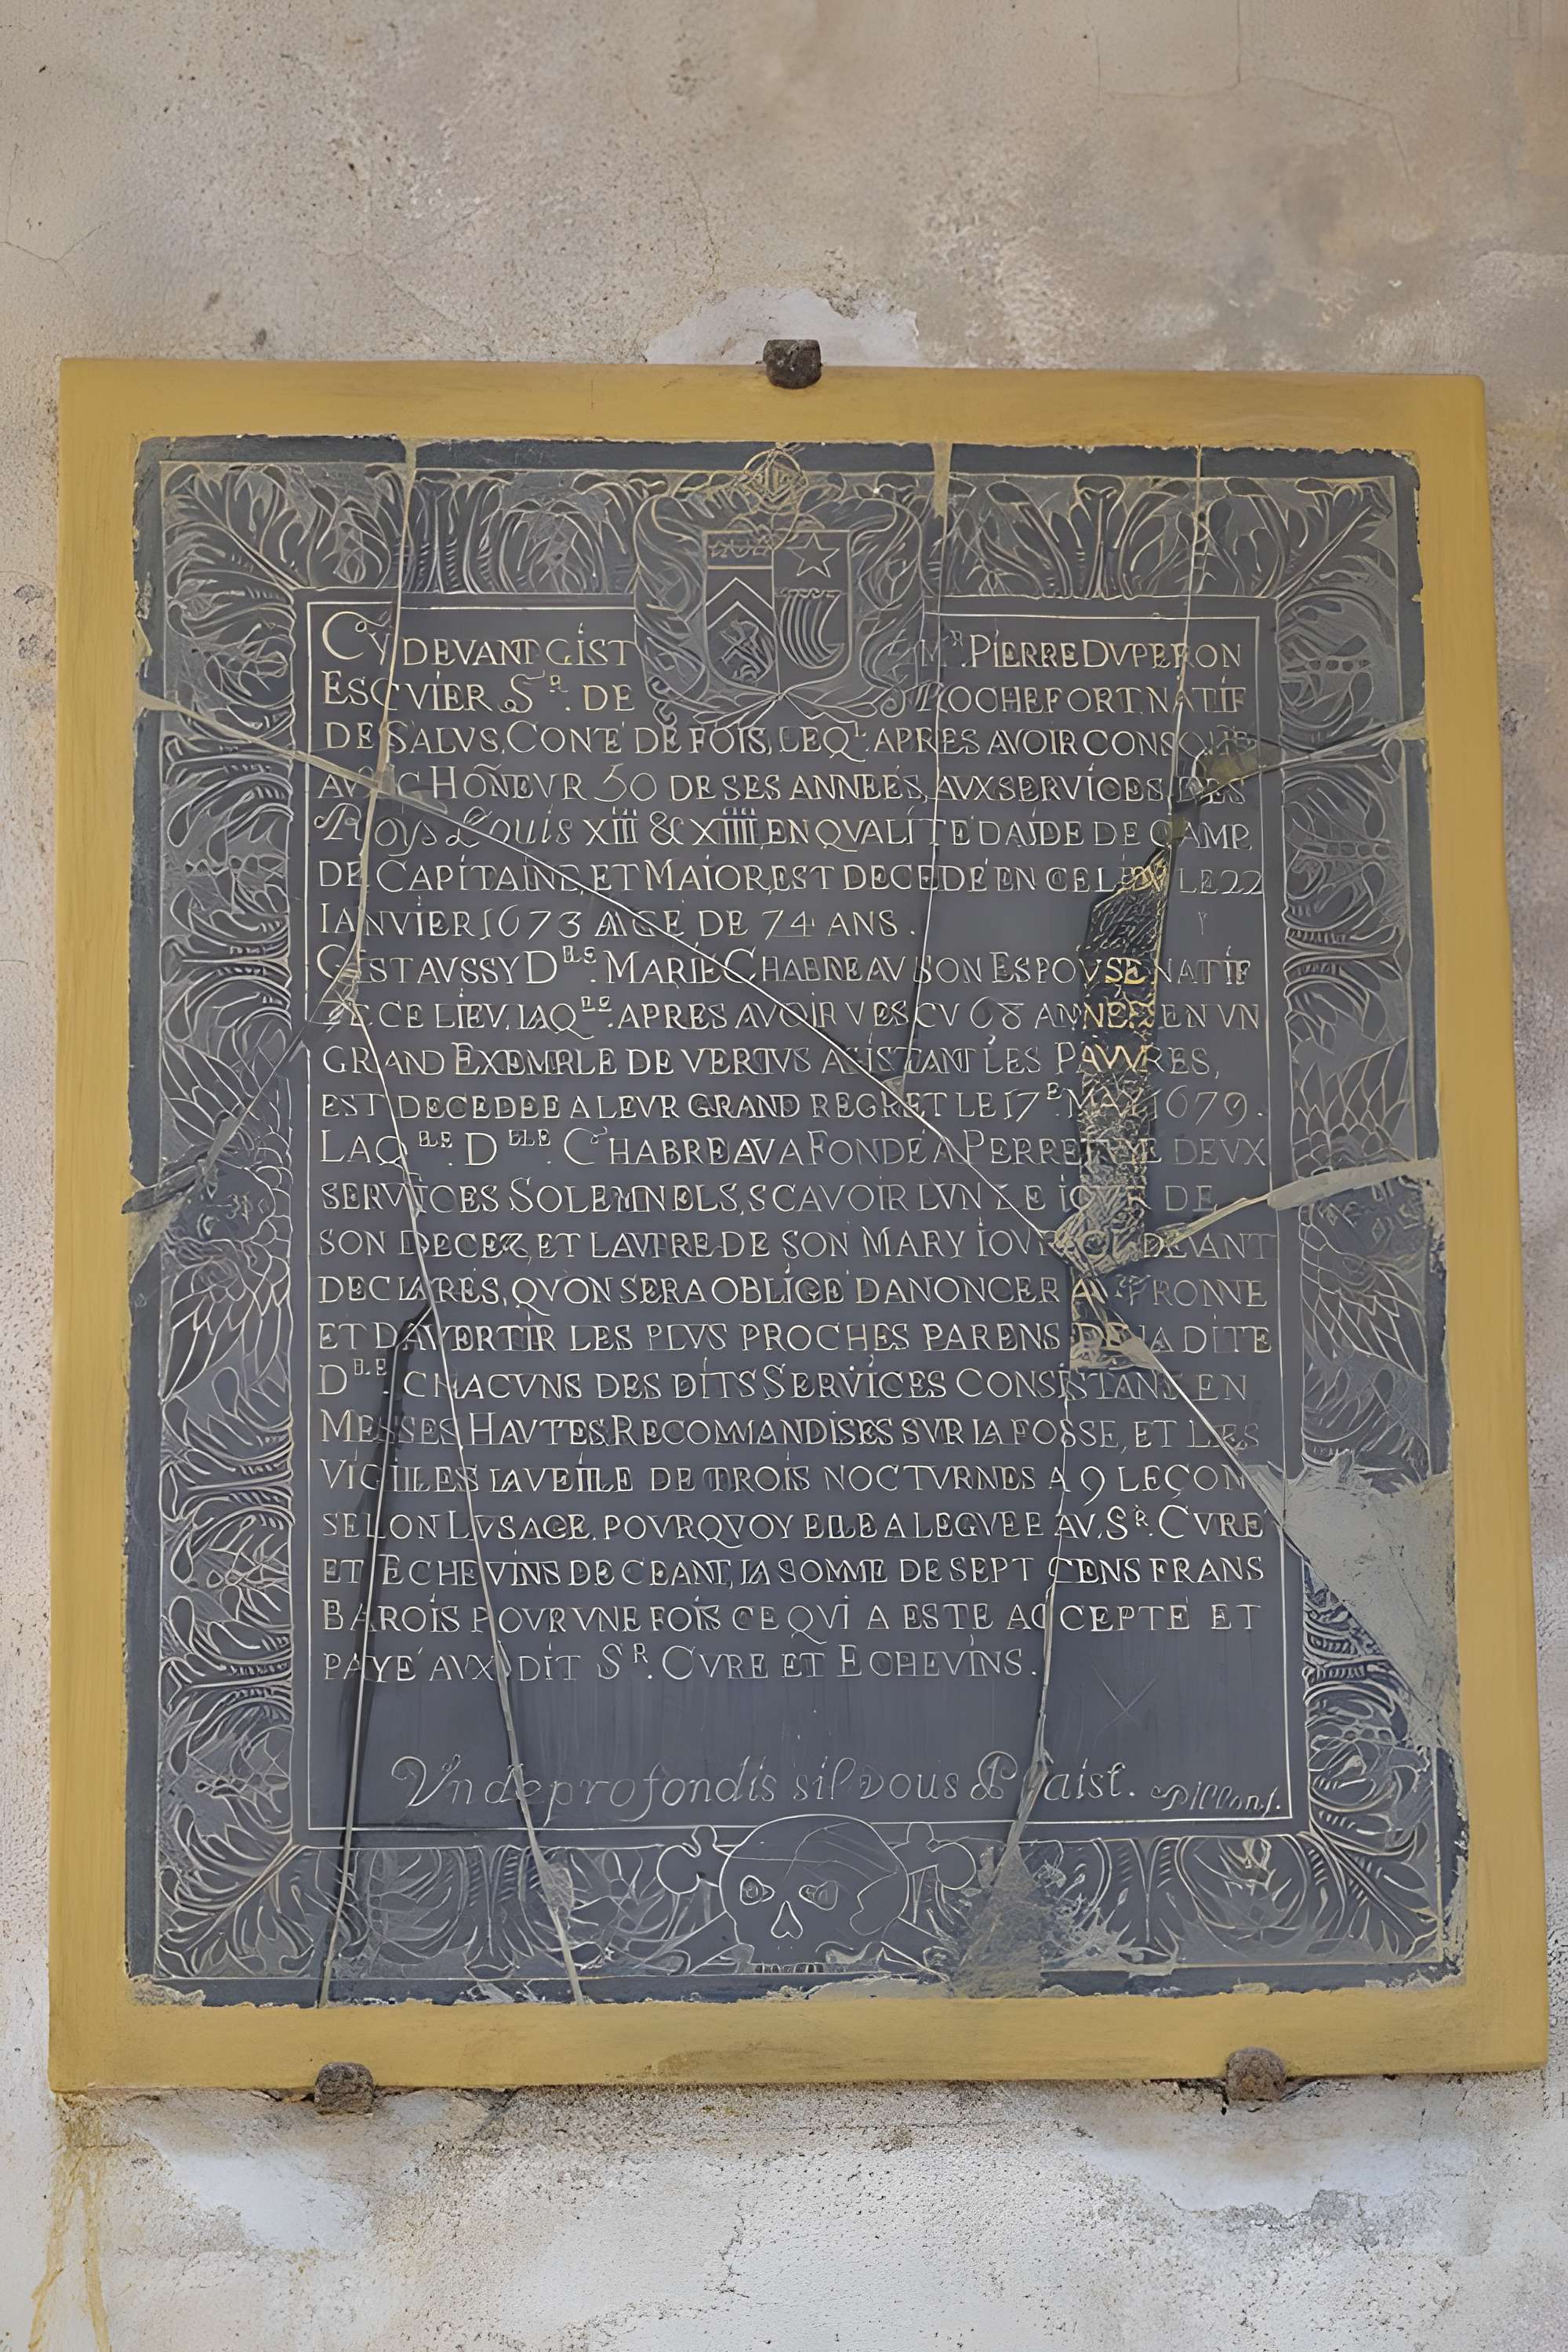 CY DEVANT GIST Mʳ. PIERRE DVPERON
ESCVIER Sʳ. DE ROCHEFORT NATIF
DE SALVS, CONTÉ DE FOIS, LEQˡ. APRES AVOIR CONSOMÉ
AVEC HOÑEVR 50 DE SES ANNEÉS, AVX SERVICES DES
Roys Louis XIII & XIIII, EN QVALITÉ DAIDE DE CAMP,
DE CAPITAINE, ET MAIOR, EST DECEDÉ EN CE LIEV LE 22
IANVIER 1673 AAGÉ DE 74 ANS.
GIST AVSSY Dˡˡᵉ. MARIE CHABREAV SON ESPOVSE NATIF
DE CE LIEV, LAQˡˡᵉ. APRES AVOIR VESCV 68 ANNEES EN VN
GRAND EXEMPLE DE VERTVS ASISTANT LES PAVVRES,
EST DECEDEE A LEVR GRAND REGRET LE 17ᴱ. MAY 1679.
LAQᵉˡˡᵉ. Dᵉˡˡᵉ. CHABREAV A FONDÉ A PERRETUE DEVX
SERVICES SOLEMNELS, SCAVOIR LVN LE IOVR DE
SON DECEZ, ET LAVTRE DE SON MARY IOVR CY DEVANT
DECLARES, QVON SERA OBLIGÉ DANONCER AV PRONNE
ET DAVERTIR LES PLVS PROCHES PARENS DE LA DITE
Dᵉˡˡᵉ. CHACVNS DES DITS SERVICES CONSISTANS EN
MESSES HAVTES RECOMMANDISES SVR LA FOSSE, ET LES
VIGILLES LA VEILLE DE TROIS NOCTVRNES A 9 LEÇON
SELON LVSAGE, POVRQVOY ELLE A LEGVEE AV, Sʳ. CVRE
ET ECHEVINS DE CEANT, LA SOMME DE SEPT CENS FRANS
BAROIS POVR VNE FOIS CE QVI A ESTÉ ACCEPTÉ ET
PAYÉ AVX DIT Sʳ. CVRE ET ECHEVINS.
Vn de profondis sil vous Plaist.